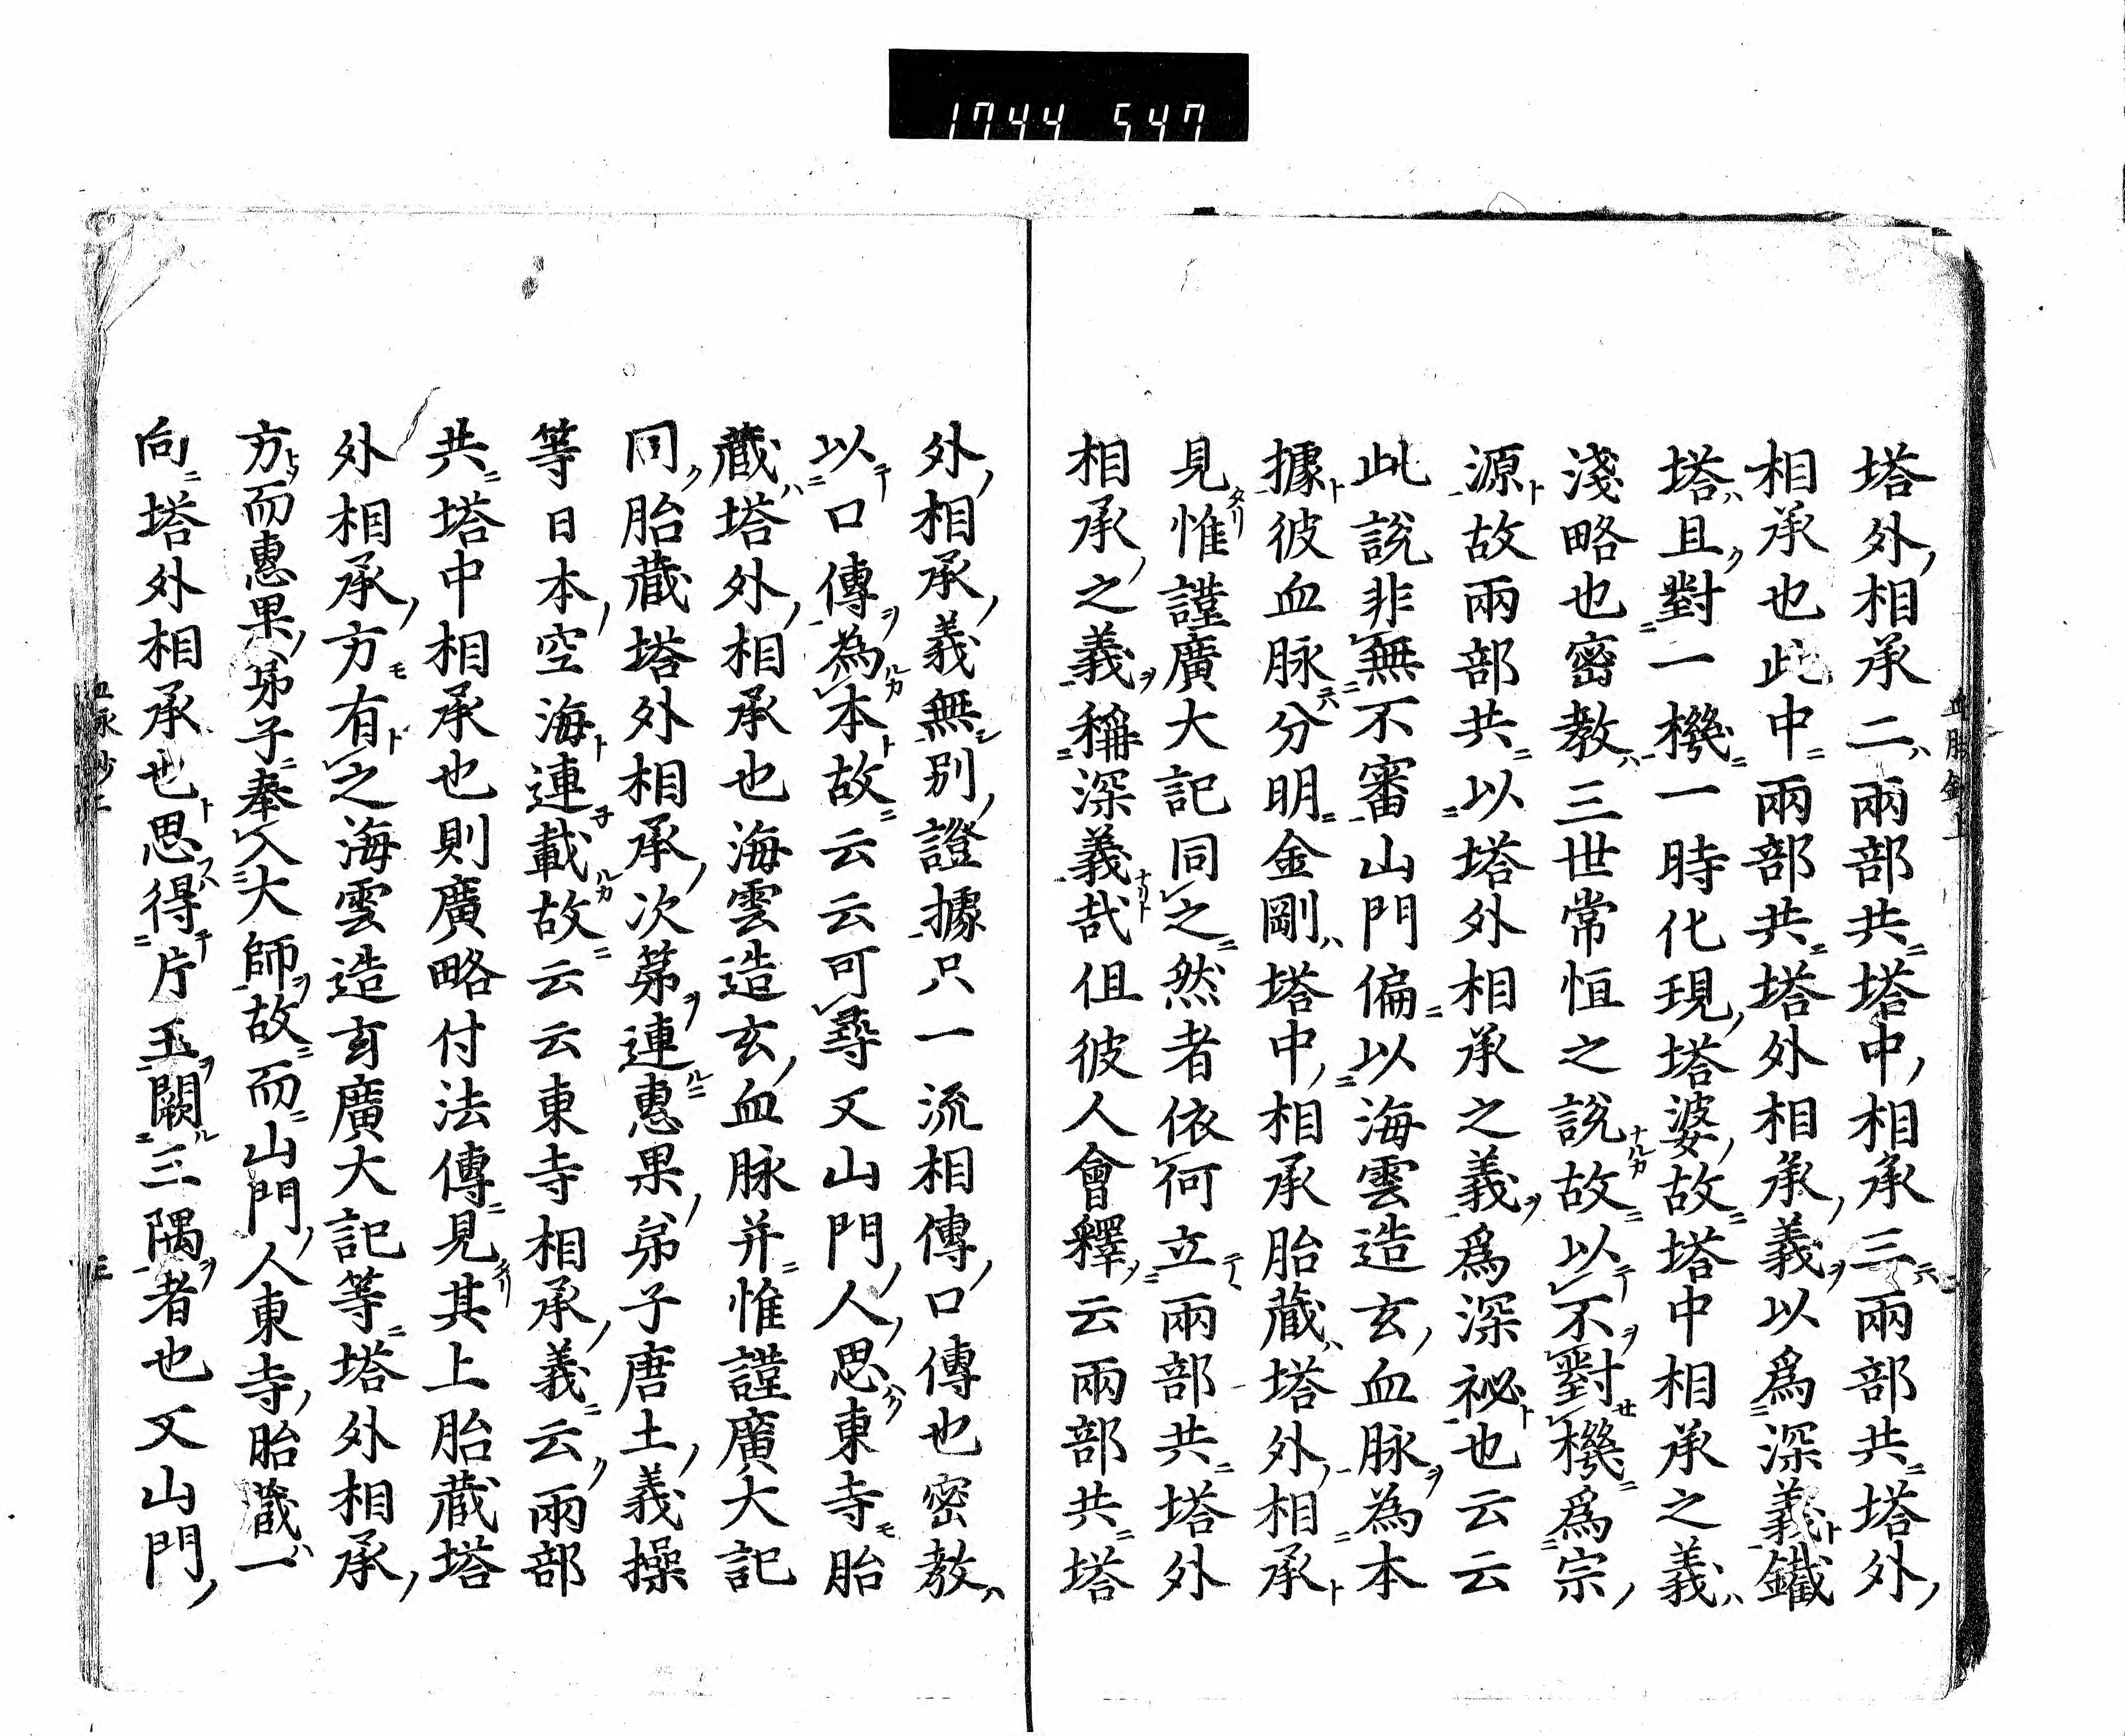 1744 547
塔外相承二兩部共塔中相承三兩部共塔外
相承也此中兩部共塔外相承義以爲深義鐵
塔且對一機一時化現塔婆故塔中相承之義
淺略也密教三世常恒之説故以不對機爲宗
源故兩部共以塔外相承之義爲深祕也云云
此説非無不審山門偏以海雲造玄血脉為本
據彼血脉分明金剛塔中相承胎藏塔外相承
見惟謹廣大記同之然者依何立兩部共塔外
相承之義稱深義哉但彼人會釋云兩部共塔
外相承義無別證據只一流相傳口傳也密教
以口傳為本故云云可尋又山門人思東寺胎
藏塔外相承也海雲造玄血脉并惟謹廣大記
同胎藏塔外相承次第連惠果弟子唐土義操
等日本空海連載故云云東寺相承義云兩部
共塔中相承也則廣略付法傳見其上胎藏塔
外相承方有之海雲造玄廣大記等塔外相承
方而惠果弟子奉入大師故而山門人東寺胎藏一
向塔外相承也思得片玉闕三隅者也又山門